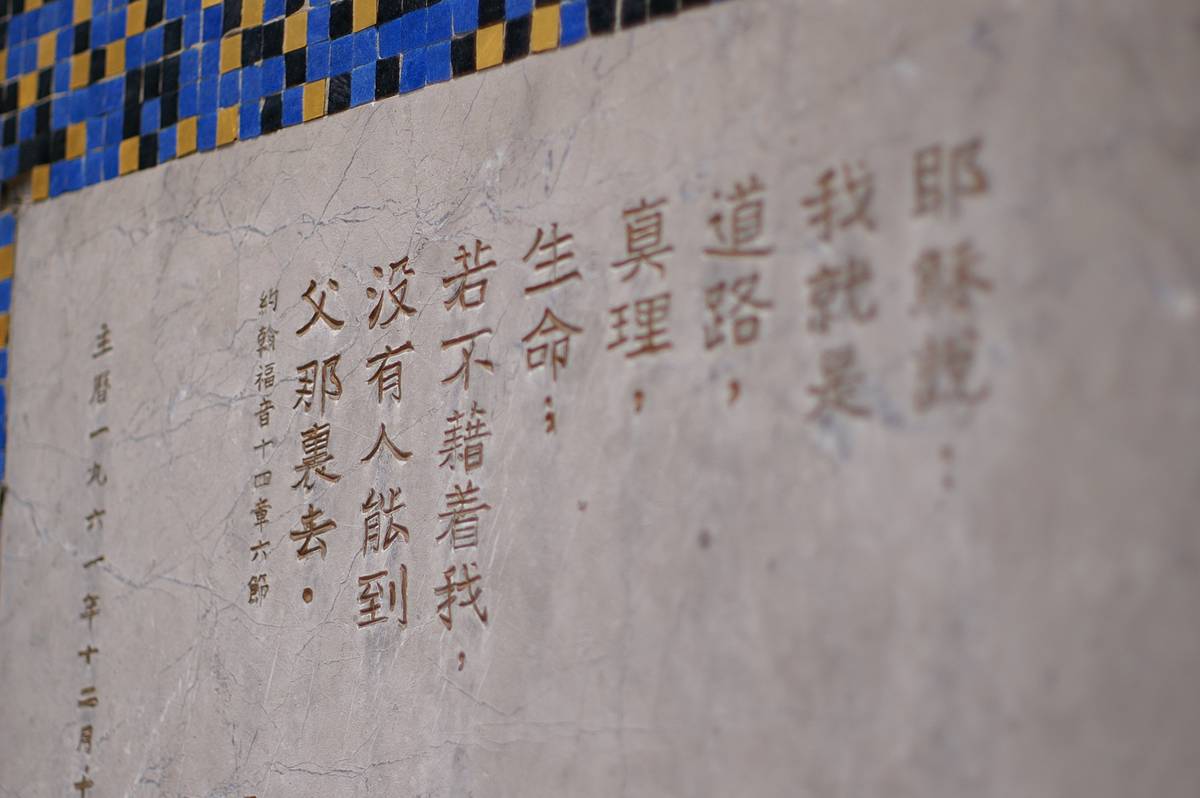 耶穌說：
我就是
道路，
真理，
生命；
若不藉着我，
没有人能到
父那裏去．
約翰福音十四章六節
主曆一九六一年十二月十